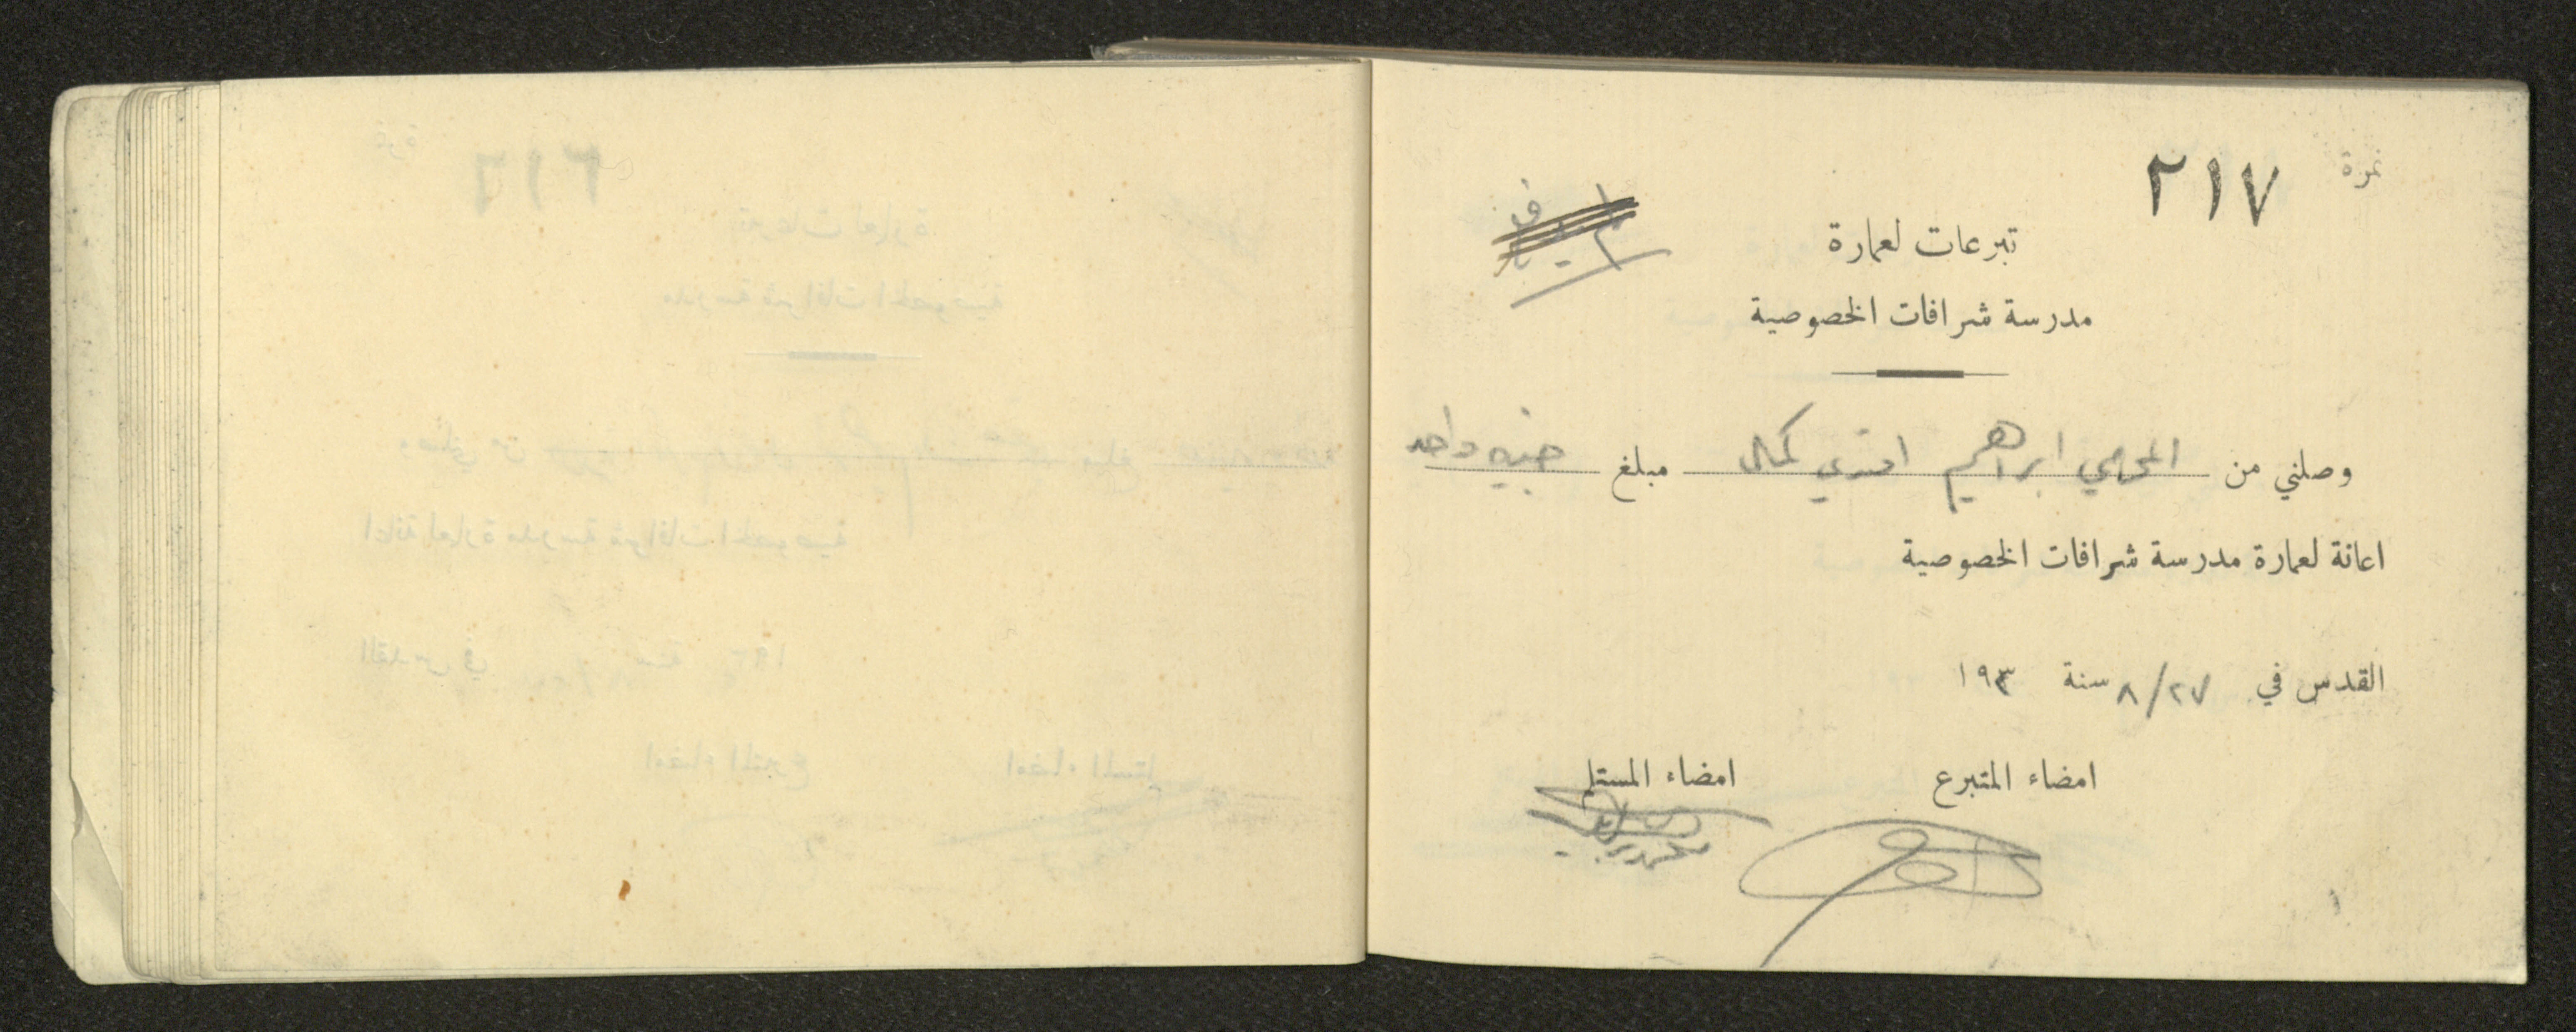 نمرة ٢١٧
تبرعات لعمارة
مدرسة شرافات الخصوصية
وصلني من المحامي ابراهيم افندي كمال مبلغ جنيه واحد
اعانة لعمارة مدرسة شرافات الخصوصية
القدس في ٢٧/٨ سنة ١٩٣
امضاء المتبرع امضاء المستلم